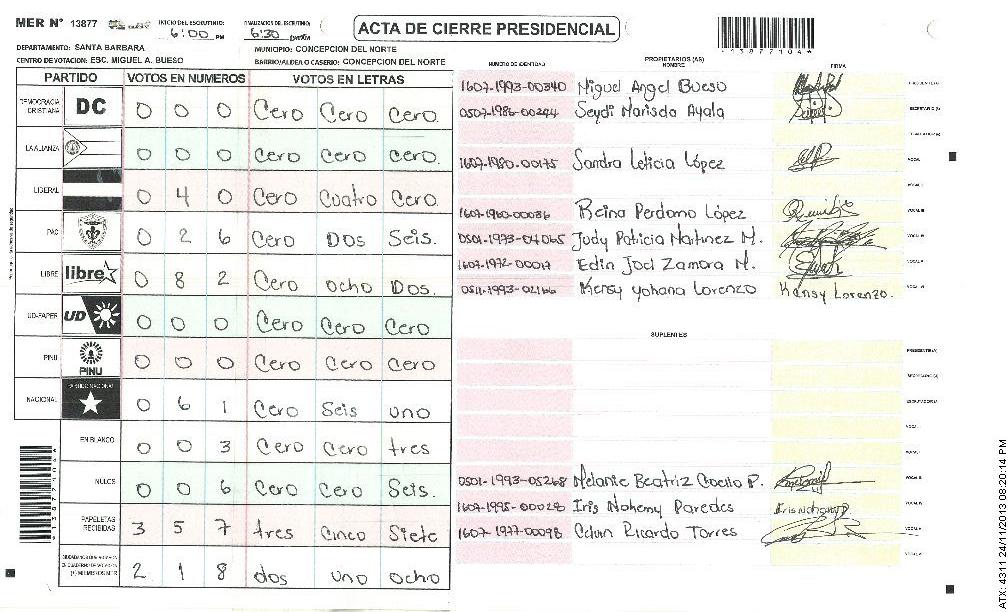 MER N° 13877 INICIO DEL ESCRUTINIO: 6:00 PM FINALIZACION DEL ESCRUTINIO: 6:30
ACTA DE CIERRE PRESIDENCIAL
*13877104*
DEPARTAMENTO: SANTA BARBARA MUNICIPIO: CONCEPCION DEL NORTE
CENTRO DE VOTACION: ESC. MIGUEL A. BUESO BARRIO/ALDEA O CASERIO: CONCEPCION DEL NORTE
PARTIDO VOTOS EN NUMEROS VOTOS EN LETRAS
DEMOCRACIA CRISTIANA DC 0 0 0 Cero Cero Cero.
LA ALIANZA 0 0 0 Cero Cero Cero.
LIBERAL 0 4 0 Cero Cuatro Cero.
PAC 0 2 6 Cero Dos Seis.
LIBRE libre 0 8 2 Cero ocho Dos.
UD-FAPER UD 0 0 0 Cero Cero Cero
PINU PINU 0 0 0 Cero Cero Cero
NACIONAL PARTIDO NACIONAL 0 6 1 Cero Seis uno
EN BLANCO 0 0 3 Cero Cero tres
NULOS 0 0 6 Cero Cero Seis.
PAPELETAS RECIBIDAS 3 5 7 tres Cinco Siete
2 1 8 dos uno ocho
NUMERO DE IDENTIDAD PROPIETARIOS (AS) NOMBRE FIRMA
1607-1993-00340 Miguel Angel Bueso PRESIDENTE(A)
0507-1986-00244 Seydi Marisda Ayala SECRETARIO(A)
1607-1980-00175 Sandra Leticia López VOCAL
1607-1960-00086 Reina Perdomo López
0501-1993-04065 Judy Patricia Martinez M.
1607-1972-00017 Edin Joel Zamora M.
0511-1993-02166 Kensy Yohana Lorenzo Kensy Lorenzo.
SUPLENTES
PRESIDENTE(A)
SECRETARIO(A)
ESCRUTADOR(A)
0501-1993-05268 Melanie Beatriz Coello P.
1607-1995-00028 Iris Nohemy Paredes Iris Nohemy P.
1607-1977-00098 Edvin Ricardo Torres
*13877104*
ATX: 4311 24/11/2013 08:20:14 PM